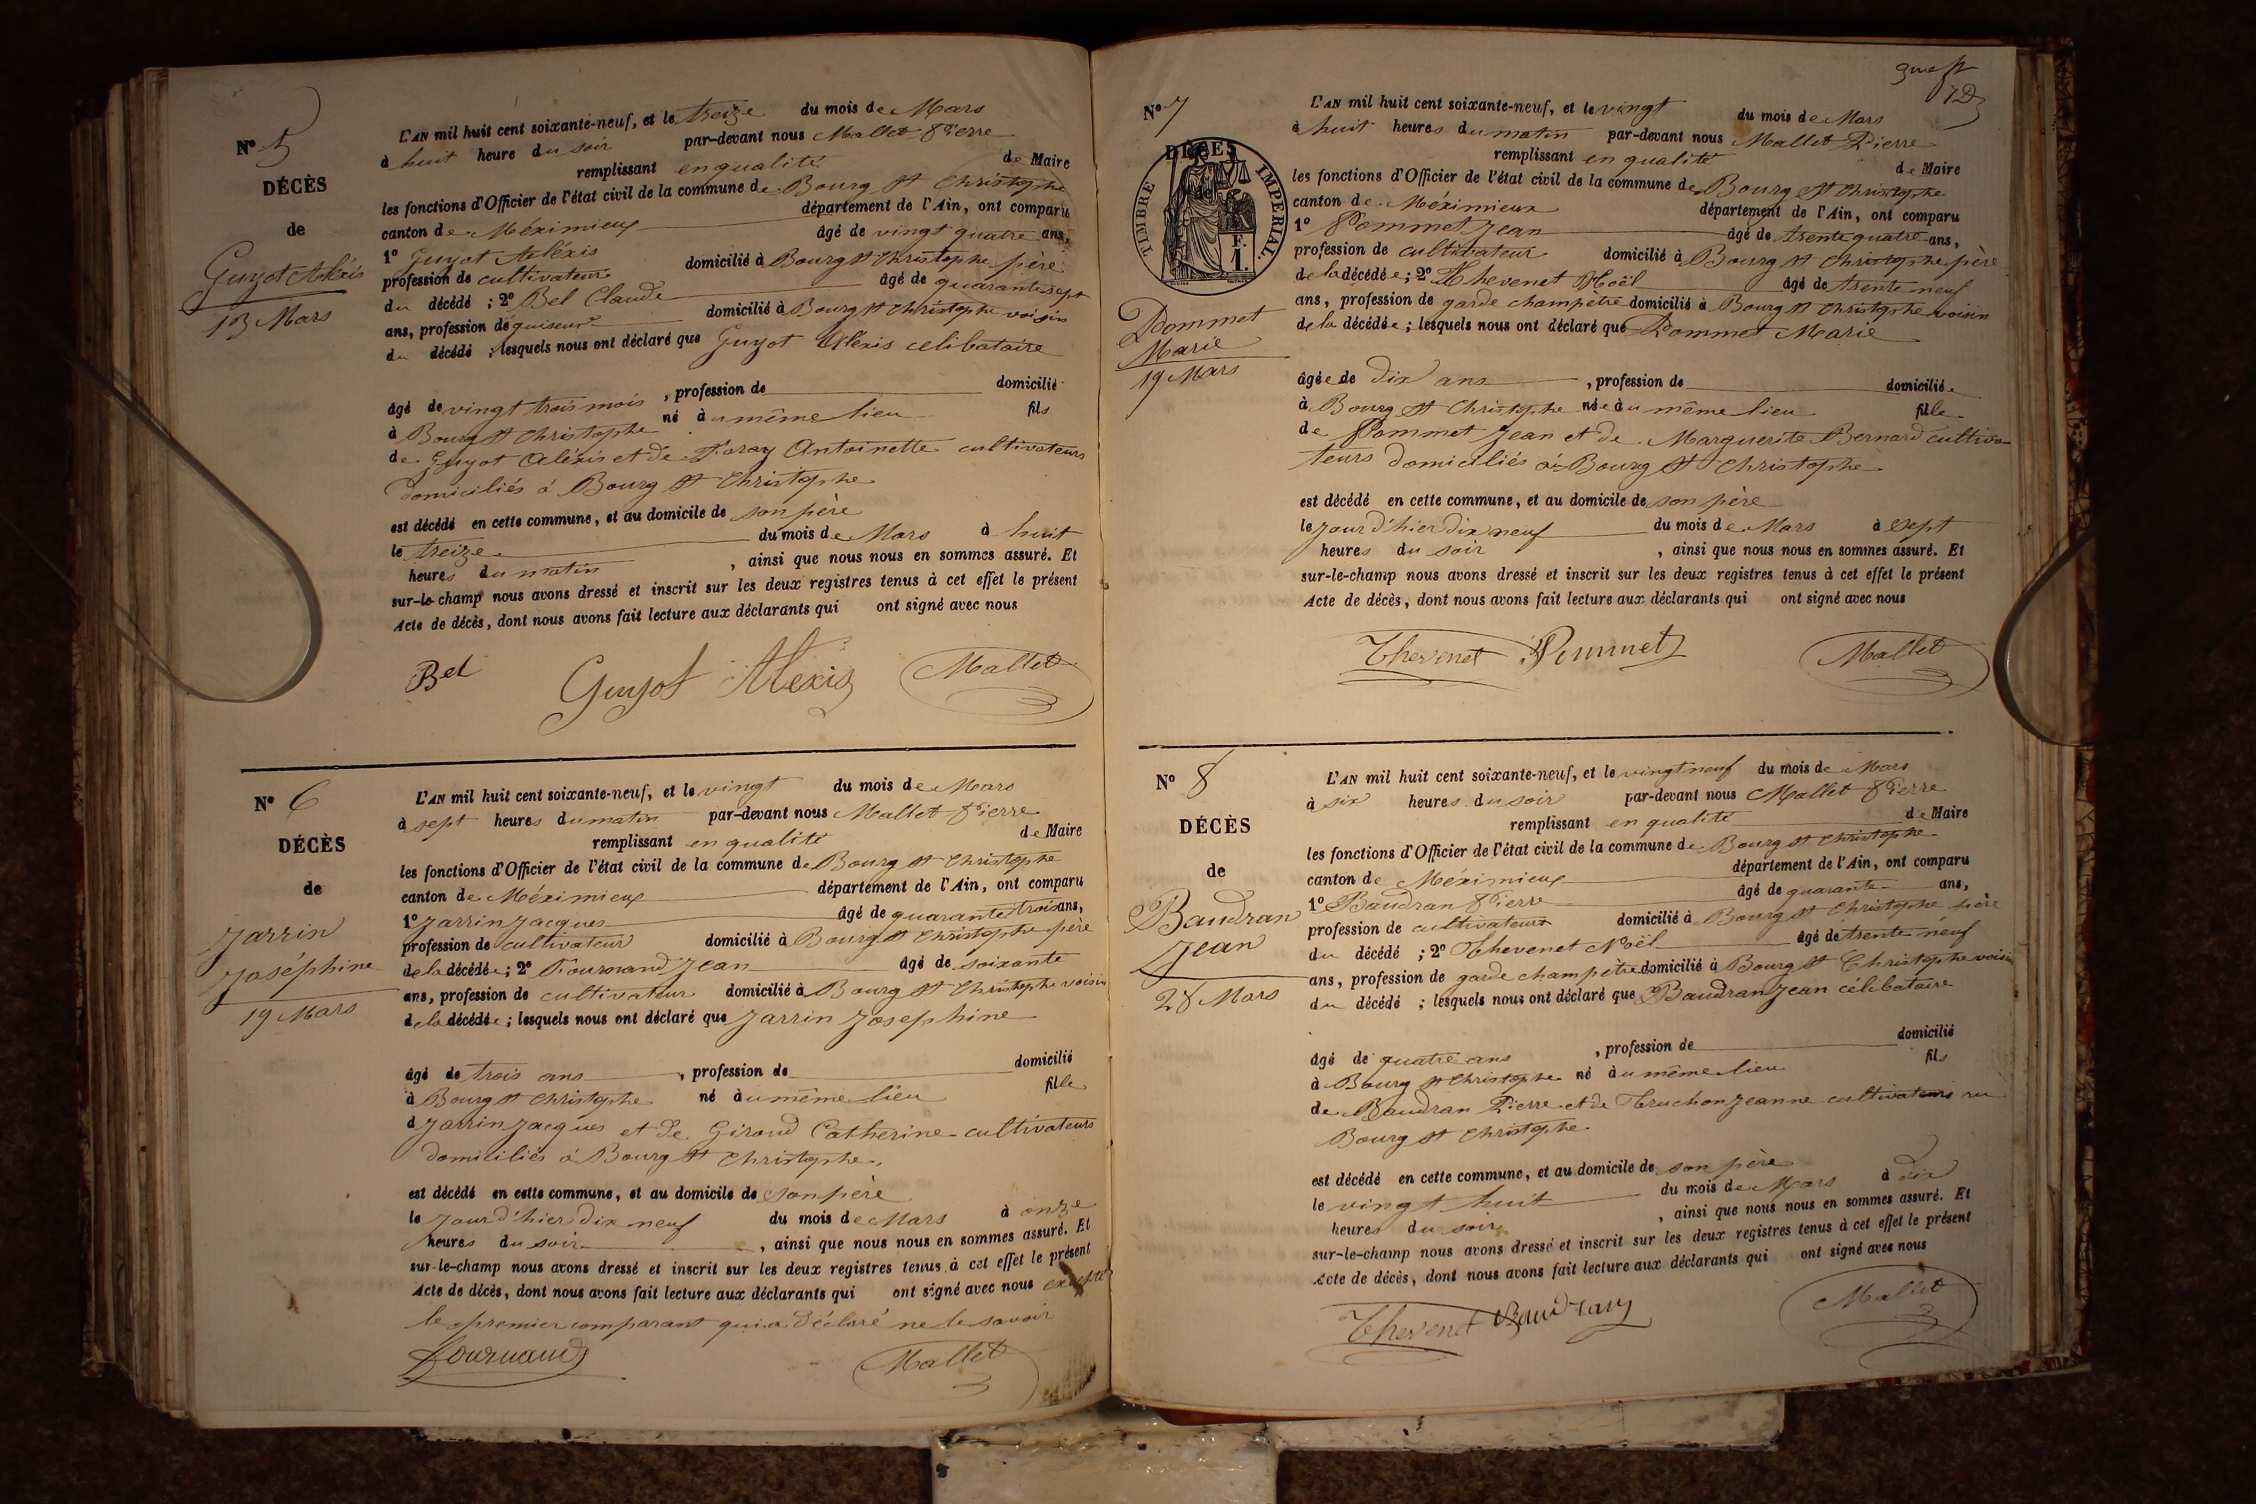 N° 5
DÉCÈS
de
Guyot Alexis
13 Mars
L'AN mil huit cent soixante-neuf, et le treize du mois de Mars
à huit heure du soir par-devant nous Mallet Pierre
remplissant en qualité de Maire
les fonctions d'Officier de l'état civil de la commune de Bourg St Christophe
canton de Méximieux département de l'Ain, ont comparu
1° Guyot Aléxis âgé de vingt quatre ans,
profession de cultivateur domicilié à Bourg St Christophe père
du décédé ; 2° Bel Claude âgé de quarante sept
ans, profession de domicilié à Bourg St Christophe voisin
du décédé ; lesquels nous ont déclaré que Guyot Alexis celibataire
âgé de vingt trois mois , profession de domicilié
à Bourg St Christophe né au même lieu fils
de Guyot Aléxis et de Antoinette cultivateurs
domiciliés à Bourg St Christophe
est décédé en cette commune, et au domicile de son père
le treize du mois de Mars à huit
heures du matin , ainsi que nous nous en sommes assuré. Et
sur-le-champ nous avons dressé et inscrit sur les deux registres tenus à cet effet le présent
Acte de décès, dont nous avons fait lecture aux déclarants qui ont signé avec nous
Bel Guyot Alexis Mallet
N° 6
DÉCÈS
de
Jarrin
Joséphine
19 Mars
L'AN mil huit cent soixante-neuf, et le vingt du mois de Mars
à sept heures du matin par-devant nous Mallet Pierre
remplissant en qualité de Maire
les fonctions d'Officier de l'état civil de la commune de Bourg St Christophe
canton de Méximieux département de l'Ain, ont comparu
1° Jarrin Jacques âgé de quarante trois ans,
profession de cultivateur domicilié à Bourg St Christophe père
de la décédée ; 2° Fournand Jean âgé de soixante
ans, profession de cultivateur domicilié à Bourg St Christophe voisin
de la décédée ; lesquels nous ont déclaré que Jarrin Josephine
âgé de trois ans , profession de domicilié
à Bourg St Christophe né au même lieu fille
d Jarrin Jacques et de Giroud Catherine cultivateurs
domiciliés à Bourg St Christophe
est décédé en cette commune, et au domicile de son père
le jour d'hier dix neuf du mois de Mars à onze
heures du soir , ainsi que nous nous en sommes assuré. Et
sur-le-champ nous avons dressé et inscrit sur les deux registres tenus à cet effet le présent
Acte de décès, dont nous avons fait lecture aux déclarants qui ont signé avec nous excepté
le premier comparant qui a déclaré ne le savoir
Fournand Mallet
N° 7
DÉCÈS
de
TIMBRE IMPERIAL
F.
1.
Pommet
Marie
19 Mars
L'AN mil huit cent soixante-neuf, et le vingt du mois de Mars
à huit heures du matin par-devant nous Mallet Pierre
remplissant en qualité de Maire
les fonctions d'Officier de l'état civil de la commune de Bourg St Christophe
canton de Méximieux département de l'Ain, ont comparu
1° Pommet Jean âgé de trente quatre ans,
profession de cultivateur domicilié à Bourg St Christophe père
de la décédée ; 2° Thevenet Noël âgé de trente neuf
ans, profession de garde champetre domicilié à Bourg St Christophe voisin
de la décédée ; lesquels nous ont déclaré que Pommet Marie
âgée de dix ans , profession de domicilié
à Bourg St Christophe née au même lieu fille
de Pommet Jean et de Marguerite Bernard cultiva
teurs domiciliés à Bourg St Christophe
est décédé en cette commune, et au domicile de son père
le jour d'hier dix neuf du mois de Mars à sept
heures du soir , ainsi que nous nous en sommes assuré. Et
sur-le-champ nous avons dressé et inscrit sur les deux registres tenus à cet effet le présent
Acte de décès, dont nous avons fait lecture aux déclarants qui ont signé avec nous
Thevenet Pommet Mallet
N° 8
DÉCÈS
de
Baudran
Jean
28 Mars
L'AN mil huit cent soixante-neuf, et le vingt neuf du mois de Mars
à six heures du soir par-devant nous Mallet Pierre
remplissant en qualité de Maire
les fonctions d'Officier de l'état civil de la commune de Bourg St Christophe
canton de Méximieux département de l'Ain, ont comparu
1° Baudran Pierre âgé de quarante ans,
profession de cultivateur domicilié à Bourg St Christophe père
du décédé ; 2° Thevenet Noël âgé de trente neuf
ans, profession de garde champêtre domicilié à Bourg St Christophe voisin
du décédé ; lesquels nous ont déclaré que Baudran Jean célibataire
âgé de quatre ans , profession de domicilié
à Bourg St Christophe né au même lieu fils
de Baudran Pierre et de Truchon Jeanne cultivateurs
Bourg St Christophe
est décédé en cette commune, et au domicile de son père
le vingt huit du mois de Mars à dix
heures du soir , ainsi que nous nous en sommes assuré. Et
sur-le-champ nous avons dressé et inscrit sur les deux registres tenus à cet effet le présent
Acte de décès, dont nous avons fait lecture aux déclarants qui ont signé avec nous
Thevenet Baudran Mallet